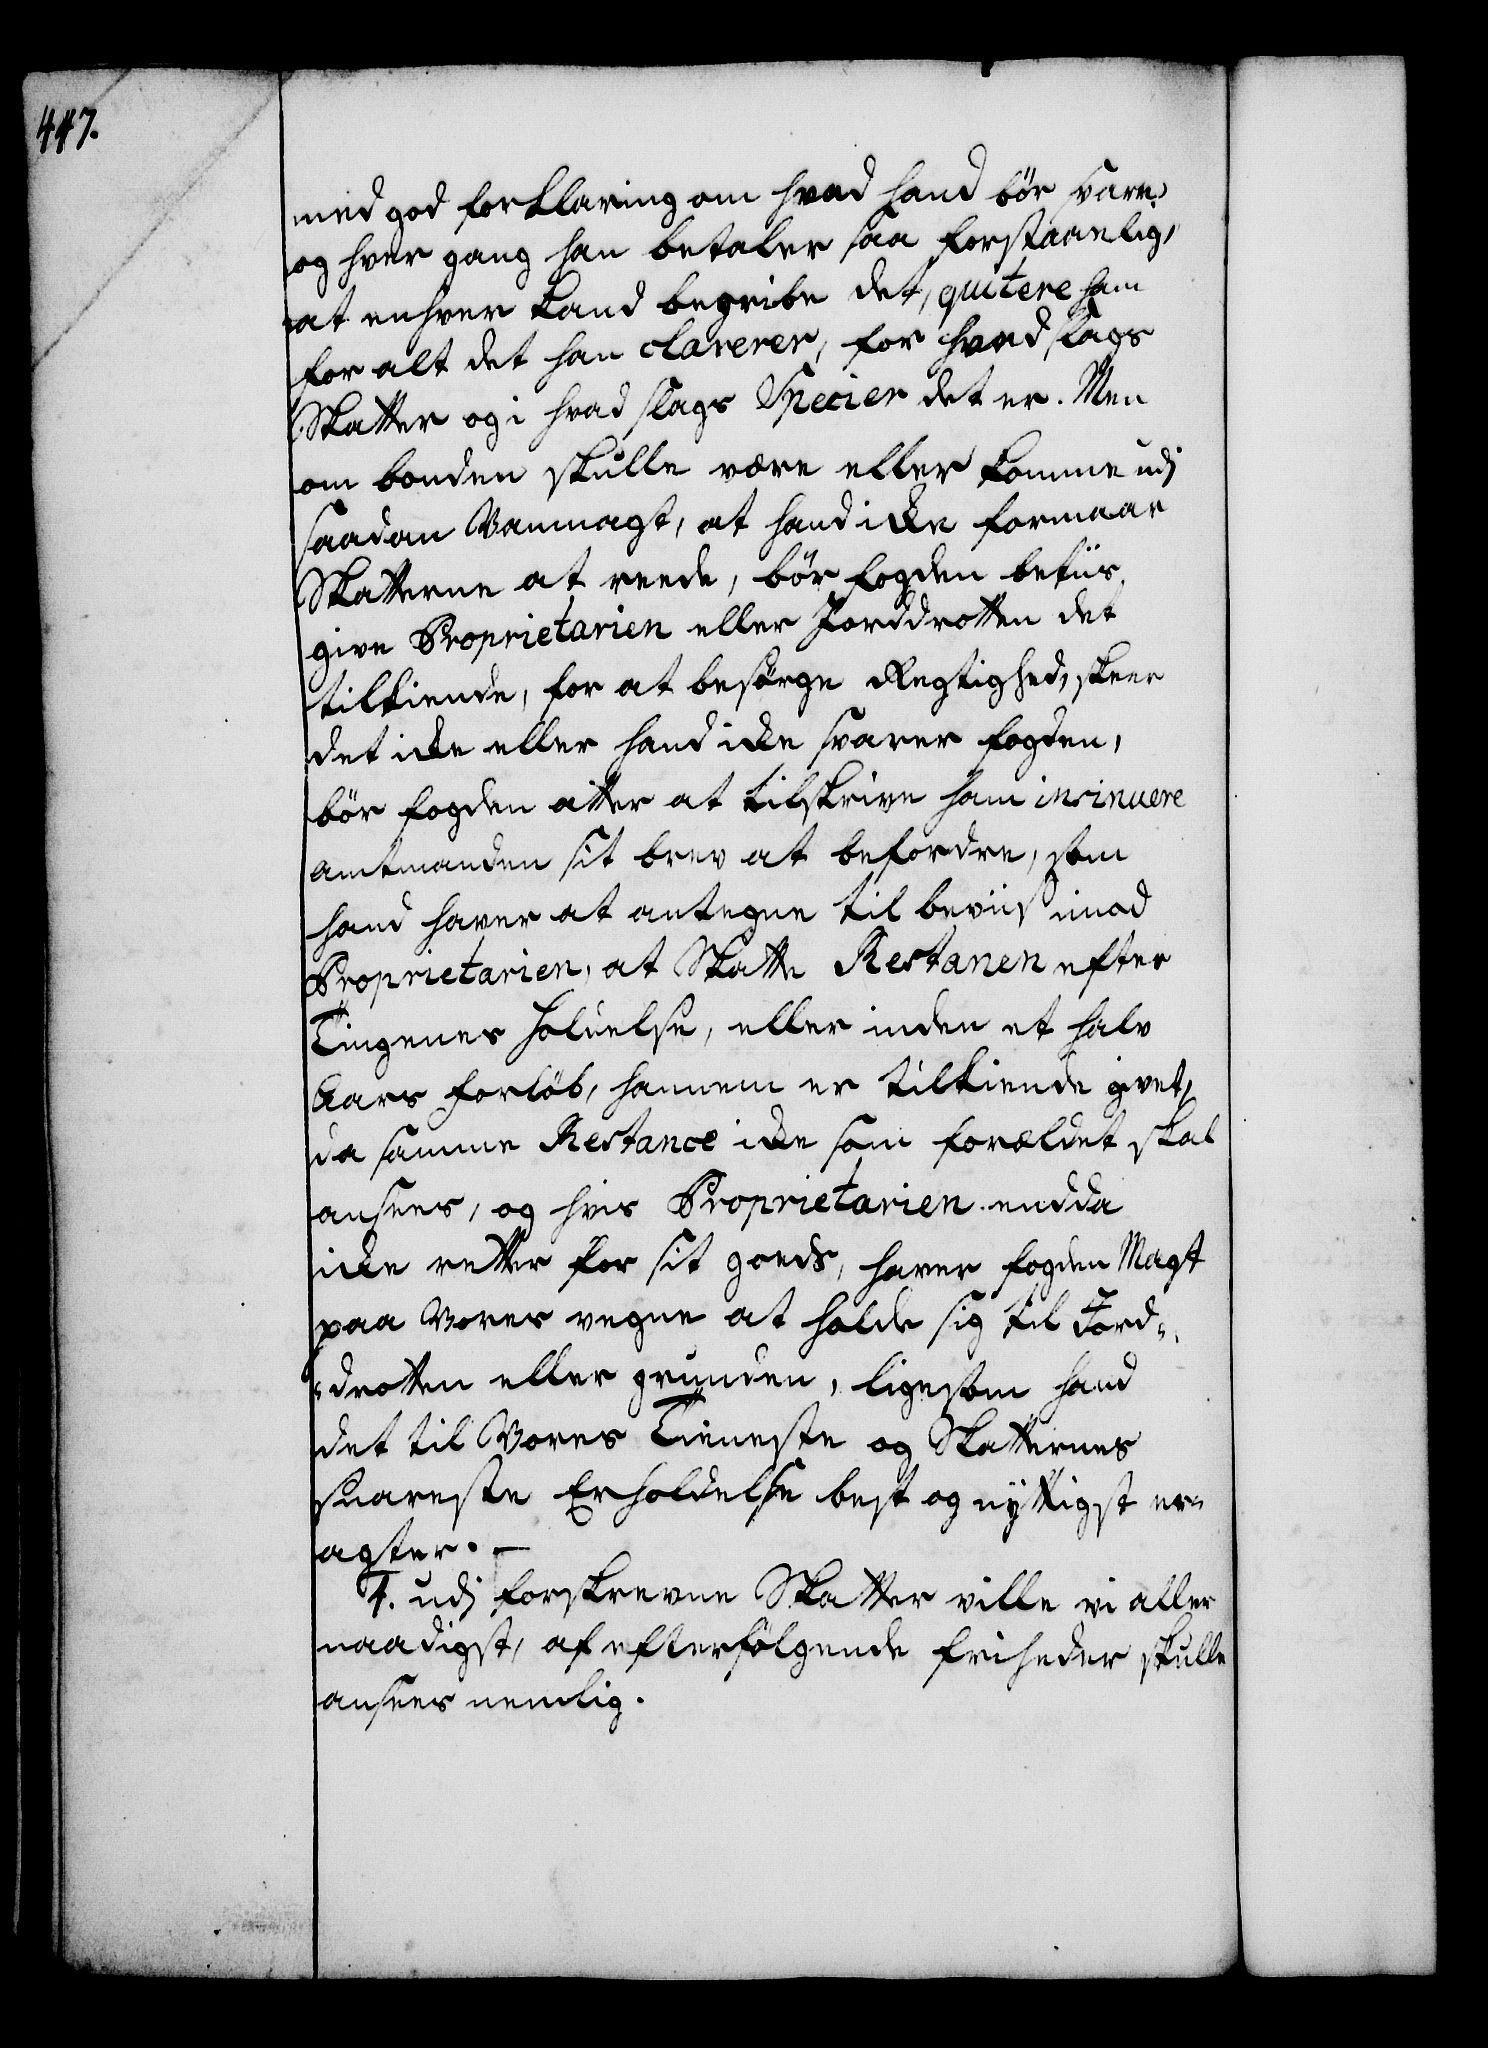 447.
med god forklaring om hvad hand bør svare,
og hver gang han betaler saa forstaaelig,
at enhver kand begribe det, quitere ham
for alt det han clarerer, for hvad slags
Skatter og i hvad slags Specier det er. Men
om bonden skulle være eller komme udj
saadan Vanmagt, at hand icke formaar
Skatterne at reede, bør fogden betiis
give Proprietarien eller Jorddrotten det
tilkiende, for at besørge Regtighed, skeer
det icke eller hand icke svarer fogden,
bør fogden atter at tilskrive ham insinuere
amtmanden sit brev at befordre, som
hand haver at antegne til beviis imod
Proprietarien, at Skatte Restanen efter
Tingenes holdelse, eller inden et halv
Aars forløb, hannem er tilkiende givet,
da samme Restance icke som forældet skal
ansees, og hvis Proprietarien endda
icke retter for sit goeds, haver fogden Magt
paa Vores vegne at holde sig til Jord-
-drotten eller grunden, ligesom hand
det til Vores Tieneste og Skatternes
snareste Erholdelse best og nyttigst er-
agter. —
4. udj forskrevne Skatter ville vi aller
naadigst, af efterfølgende friheder skulle
ansees nemlig.